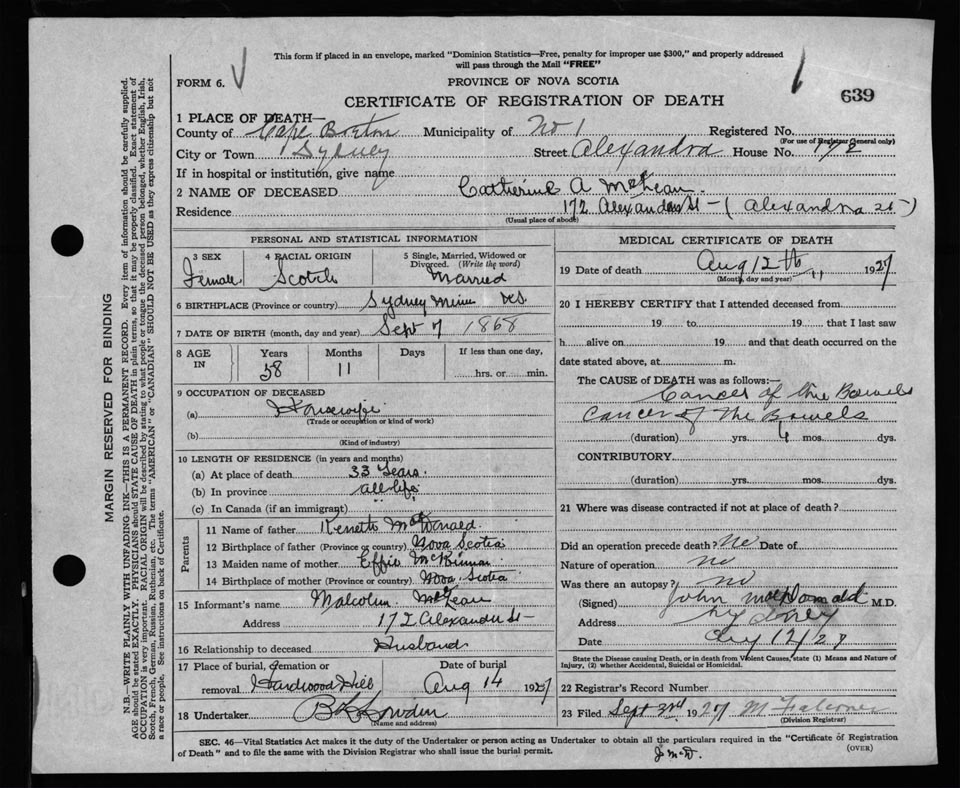 This form if placed in an envelope, marked "Dominion Statistics—Free, penalty for improper use $300," and properly addressed
will pass through the Mail "FREE"
FORM 6. PROVINCE OF NOVA SCOTIA
CERTIFICATE OF REGISTRATION OF DEATH 639
1 PLACE OF DEATH—
County of Cape Breton Municipality of No 1 Registered No.
(For use of Registrar General only)
City or Town Sydney Street Alexandra House No. 172
If in hospital or institution, give name
2 NAME OF DECEASED Catherine A McLean
Residence 172 Alexandra St — (Alexandra St)
(Usual place of abode)
PERSONAL AND STATISTICAL INFORMATION
3 SEX 4 RACIAL ORIGIN 5 Single, Married, Widowed or
Divorced. (Write the word)
Female Scotch Married
6 BIRTHPLACE (Province or country) Sydney Mines NS
7 DATE OF BIRTH (month, day and year) Sept 7 1868
8 AGE IN Years Months Days If less than one day,
58 11 hrs. or min.
9 OCCUPATION OF DECEASED
(a) Housewife
(Trade or occupation or kind of work)
(b)
(Kind of industry)
10 LENGTH OF RESIDENCE (in years and months)
(a) At place of death 33 Years.
(b) In province all life
(c) In Canada (if an immigrant)
Parents
11 Name of father Kenneth McDonald
12 Birthplace of father (Province or country) Nova Scotia
13 Maiden name of mother Effie McKinnon
14 Birthplace of mother (Province or country) Nova Scotia
15 Informant's name Malcolm McLean
Address 172 Alexandra St —
16 Relationship to deceased Husband
17 Place of burial, cremation or Date of burial
removal Hardwood Hill Aug 14 1927
18 Undertaker
(Name and address)
MEDICAL CERTIFICATE OF DEATH
19 Date of death Aug 12th 1927
(Month, day and year)
20 I HEREBY CERTIFY that I attended deceased from
19 to 19 that I last saw
h alive on 19 and that death occurred on the
date stated above, at m.
The CAUSE OF DEATH was as follows:—
Cancer of the Bowels
Cancer of the Bowels
(duration) yrs. 4 mos. dys.
CONTRIBUTORY
(duration) yrs. mos. dys.
21 Where was disease contracted if not at place of death?
Did an operation precede death? No Date of
Nature of operation no
Was there an autopsy? no
(Signed) John MacDonald M.D.
Address Sydney
Date Aug 12/27
State the Disease causing Death, or in death from Violent Causes, state (1) Means and Nature of
Injury, (2) whether Accidental, Suicidal or Homicidal.
22 Registrar's Record Number
23 Filed Sept 3rd 1927 M Falconer
(Division Registrar)
SEC. 46—Vital Statistics Act makes it the duty of the Undertaker or person acting as Undertaker to obtain all the particulars required in the "Certificate of Registration
of Death" and to file the same with the Division Registrar who shall issue the burial permit.
(OVER)
MARGIN RESERVED FOR BINDING
N.B.—WRITE PLAINLY WITH UNFADING INK—THIS IS A PERMANENT RECORD. Every item of information should be carefully supplied.
AGE should be stated EXACTLY. PHYSICIANS should STATE CAUSE OF DEATH in plain terms, so that it may be properly classified. Exact statement of
OCCUPATION is very important. RACIAL ORIGIN will be described by stating to what people or tongue the deceased person belonged, whether English, Irish,
Scotch, French, German, Russian, Ruthenian, etc. The terms "AMERICAN" or "CANADIAN" SHOULD NOT BE USED as they express citizenship but not
a race or people. See instructions on back of Certificate.